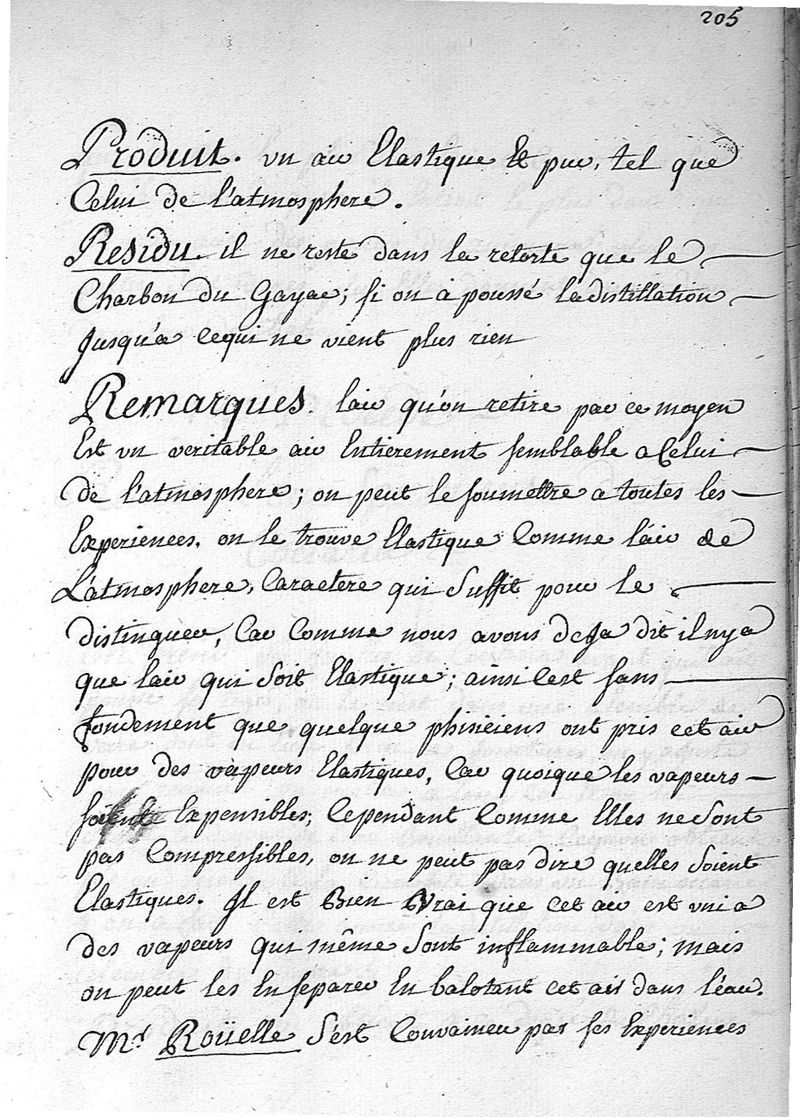 205
Produit. vn air Elastique Et pur, tel que
Celui de l'atmosphere.
Residu. il ne reste dans la retorte que le
Charbon du Gayac; si on à poussé la distillation
Jusqu'a cequi ne vient plus rien
Remarques. lair qu'on retire par ce moyen
Est vn veritable air Entierement semblable a Celui
de l'atmosphere; on peut le soumettre a toutes les
Experiences, on le trouve Elastique Comme l'air de
L'atmosphere, Caractere qui Suffit pour le
distinguer, Car Comme nous avons deja dit il nya
que lair qui Soit Elastique; ainsi Cest sans
fondement que quelque phisiciens ont pris cet air
pour des vapeurs Elastiques, Car quoique les vapeurs
soient Expensibles, Cependant Comme Elles ne Sont
pas Compressibles, on ne peut pas dire quelles Soient
Elastiques. Il est Bien Vrai que cet air est vni a
des vapeurs qui même Sont inflammable; mais
on peut les En separer En balotant cet air dans l'eau.
Mr. Roüelle S'est Convaincu par ses Experiences